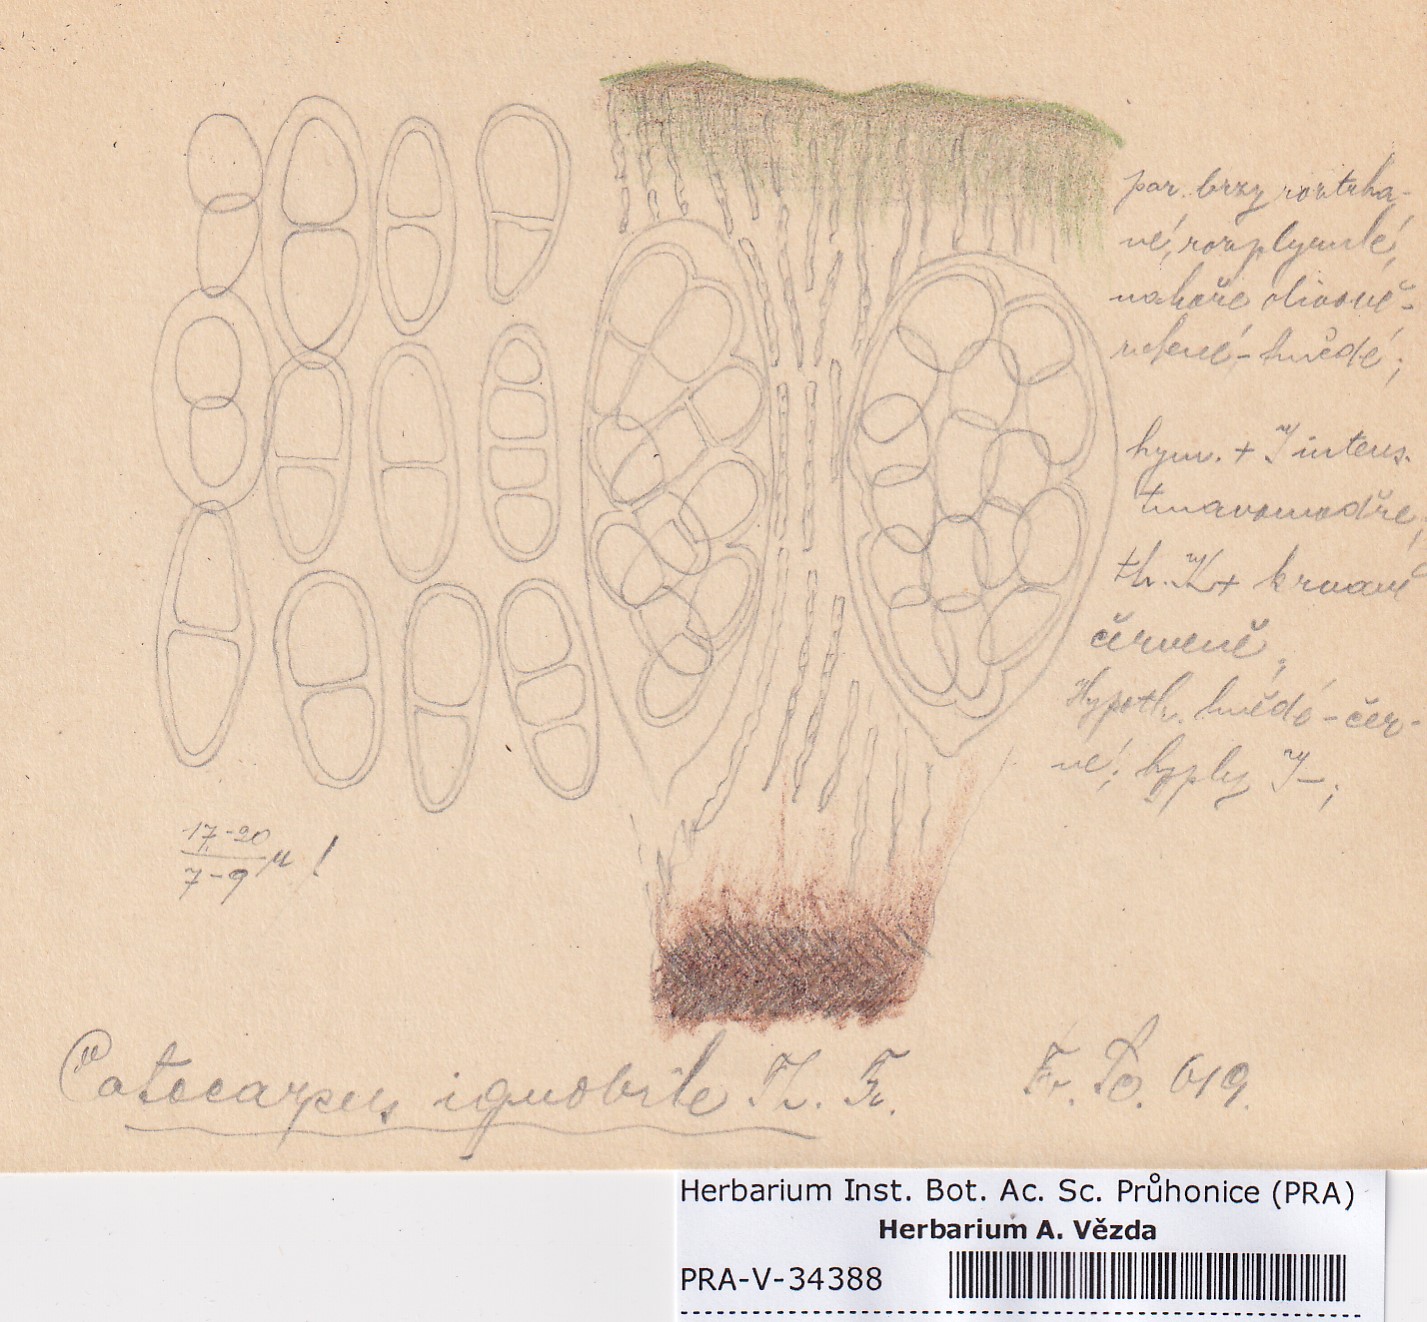 par. brzy roztrha-
né, rozplynulé,
nahoře olivově-
zelené-hnědé;
hym. + J intens.
tmavomodře,
th. K+ krvavě
červeně,
Hypoth. hnědé-čer-
né; hyphy J-;
17-20
7-9 µ !
Catocarpus ignobile Th. Fr.
Fr. 619.
Herbarium Inst. Bot. Ac. Sc. Průhonice (PRA)
Herbarium A. Vězda
PRA-V-34388